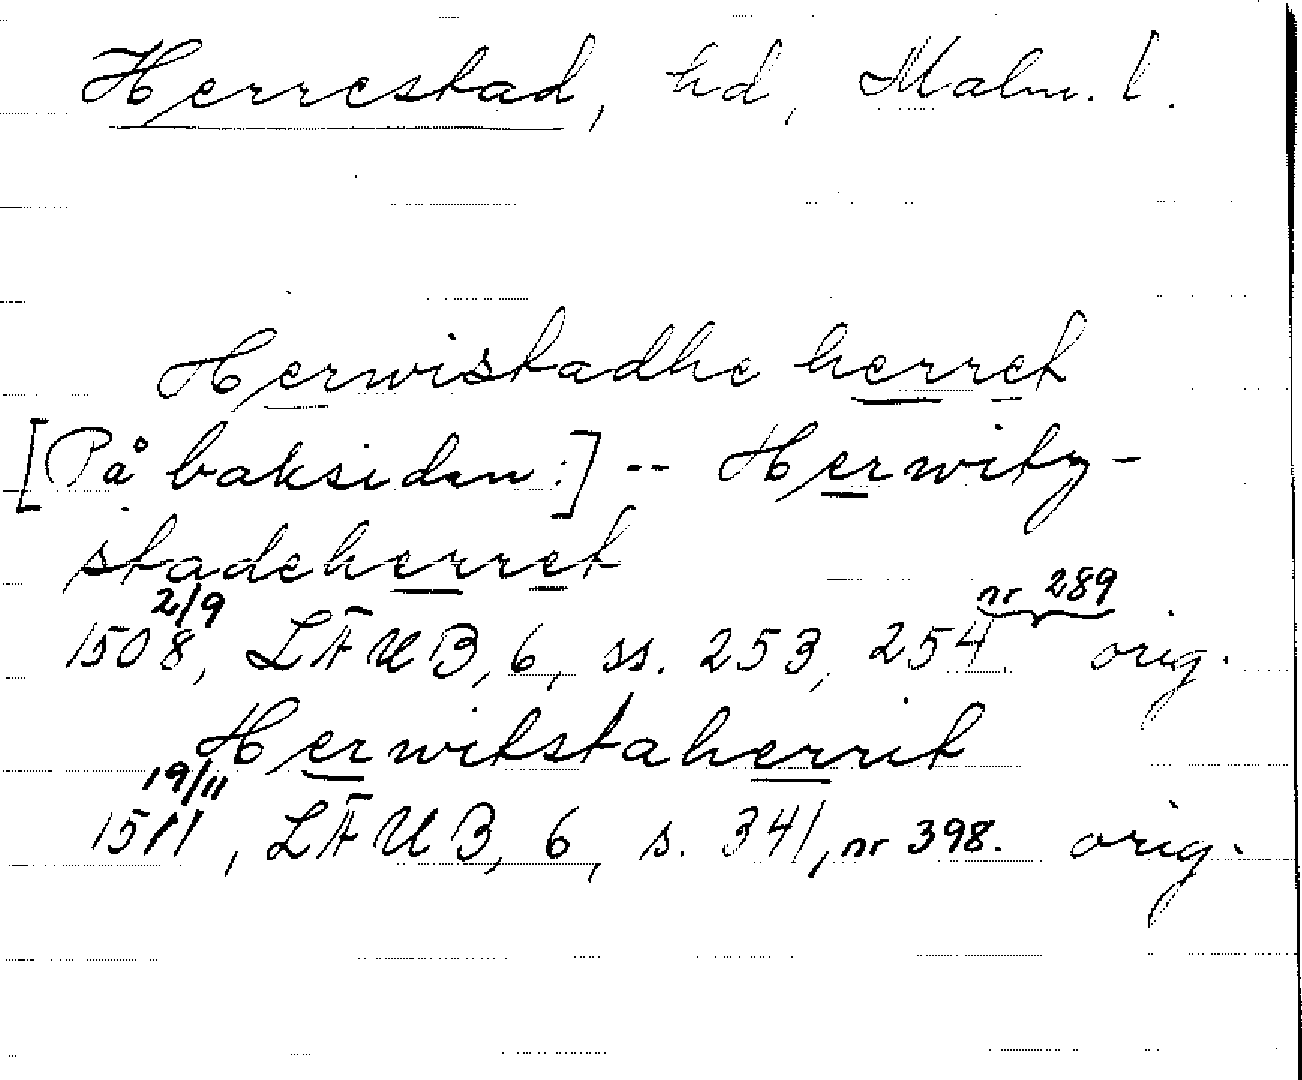 Herrestad, hd, Malm. l.
Herwistadhe herret
[På baksidan:] -- Herwitz-
stadeherret
2/9 nr 289
1508, LÄUB, 6, ss. 253, 254 orig.
Herwitstaherrit
19/11
1511, LÄUB, 6, s. 341, nr 398. orig.